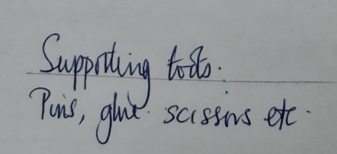 Supporting tools.
Pins, glue. scissors etc.